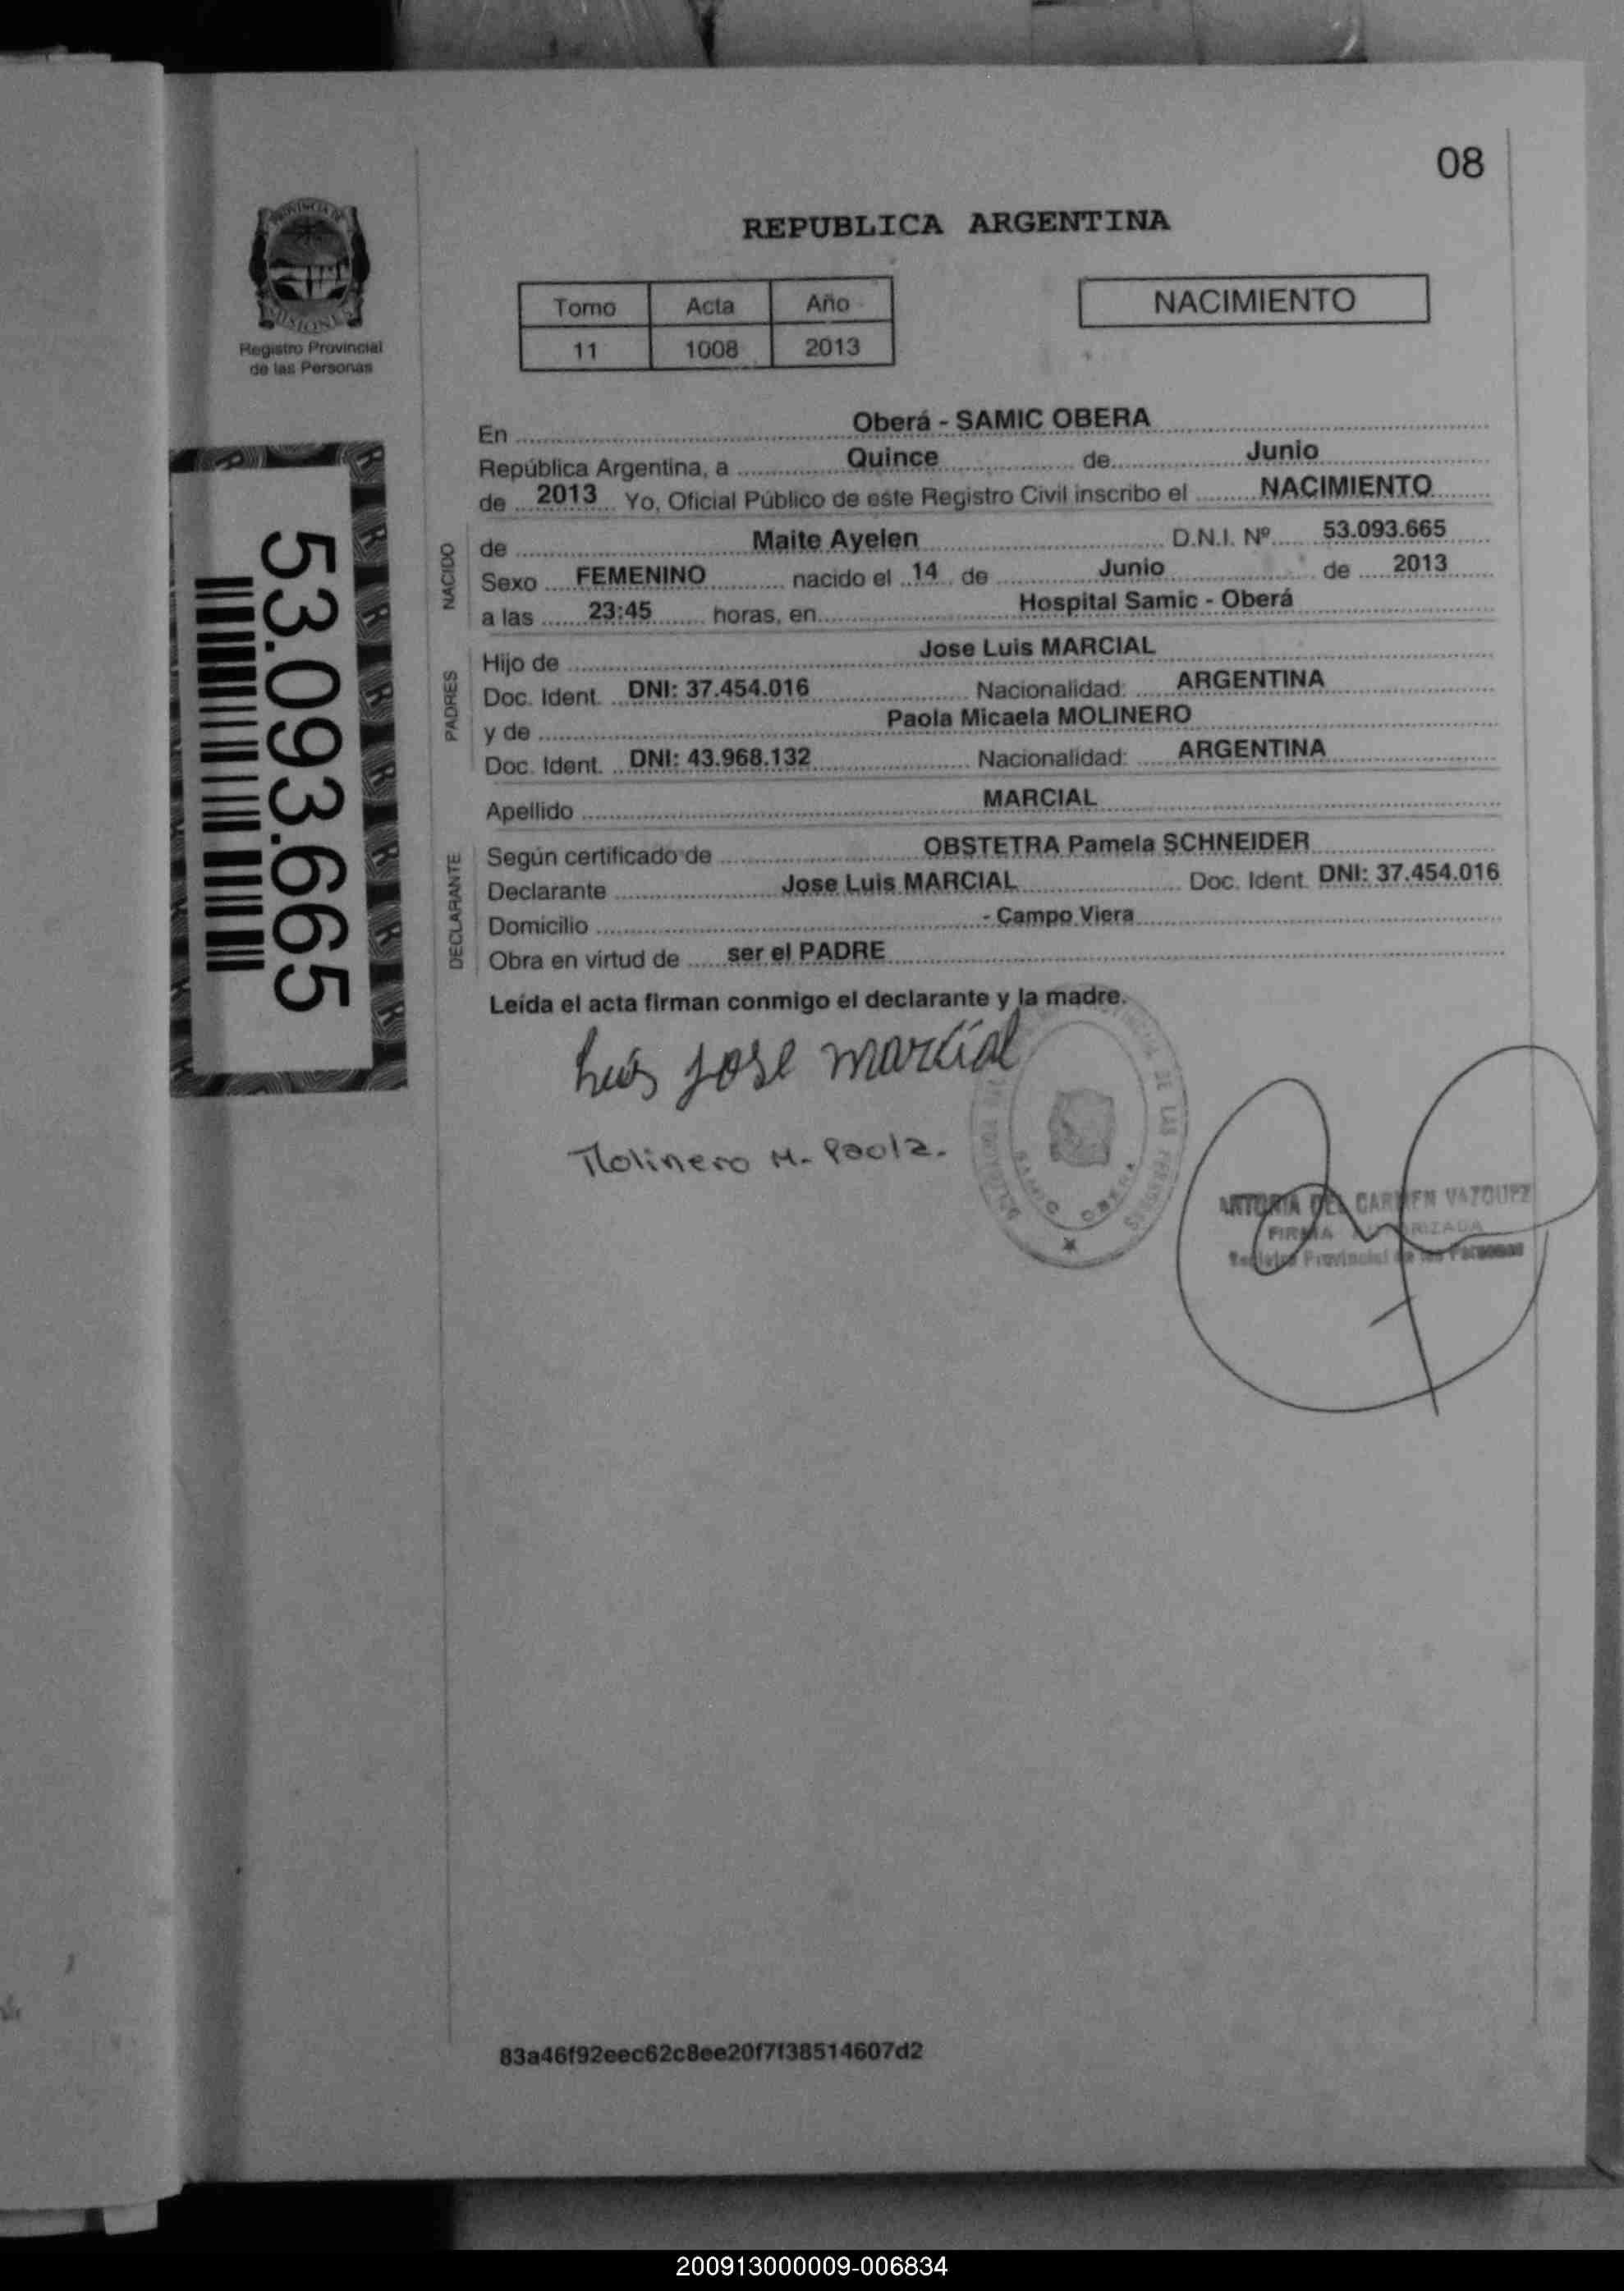 08
PROVINCIA DE
MISIONES
Registro Provincial
de las Personas
REPUBLICA ARGENTINA
Tomo Acta Año
11 1008 2013
NACIMIENTO
53.093.665
En Oberá - SAMIC OBERA
República Argentina, a Quince de Junio
de 2013 Yo, Oficial Público de este Registro Civil inscribo el NACIMIENTO
NACIDO
de Maite Ayelen D.N.I. Nº 53.093.665
Sexo FEMENINO nacido el 14 de Junio de 2013
a las 23:45 horas, en Hospital Samic - Oberá
PADRES
Hijo de Jose Luis MARCIAL
Doc. Ident. DNI: 37.454.016 Nacionalidad: ARGENTINA
y de Paola Micaela MOLINERO
Doc. Ident. DNI: 43.968.132 Nacionalidad: ARGENTINA
Apellido MARCIAL
DECLARANTE
Según certificado de OBSTETRA Pamela SCHNEIDER
Declarante Jose Luis MARCIAL Doc. Ident. DNI: 37.454.016
Domicilio - Campo Viera
Obra en virtud de ser el PADRE
Leída el acta firman conmigo el declarante y la madre.
Luis Jose marcial
Molinero M. Paola.
DE LAS PERSONAS
SAMIC OBERA
ANTONIA DEL CARMEN VAZQUEZ
FIRMA AUTORIZADA
Registro Provincial de las Personas
83a46f92eec62c8ee20f7f38514607d2
200913000009-006834